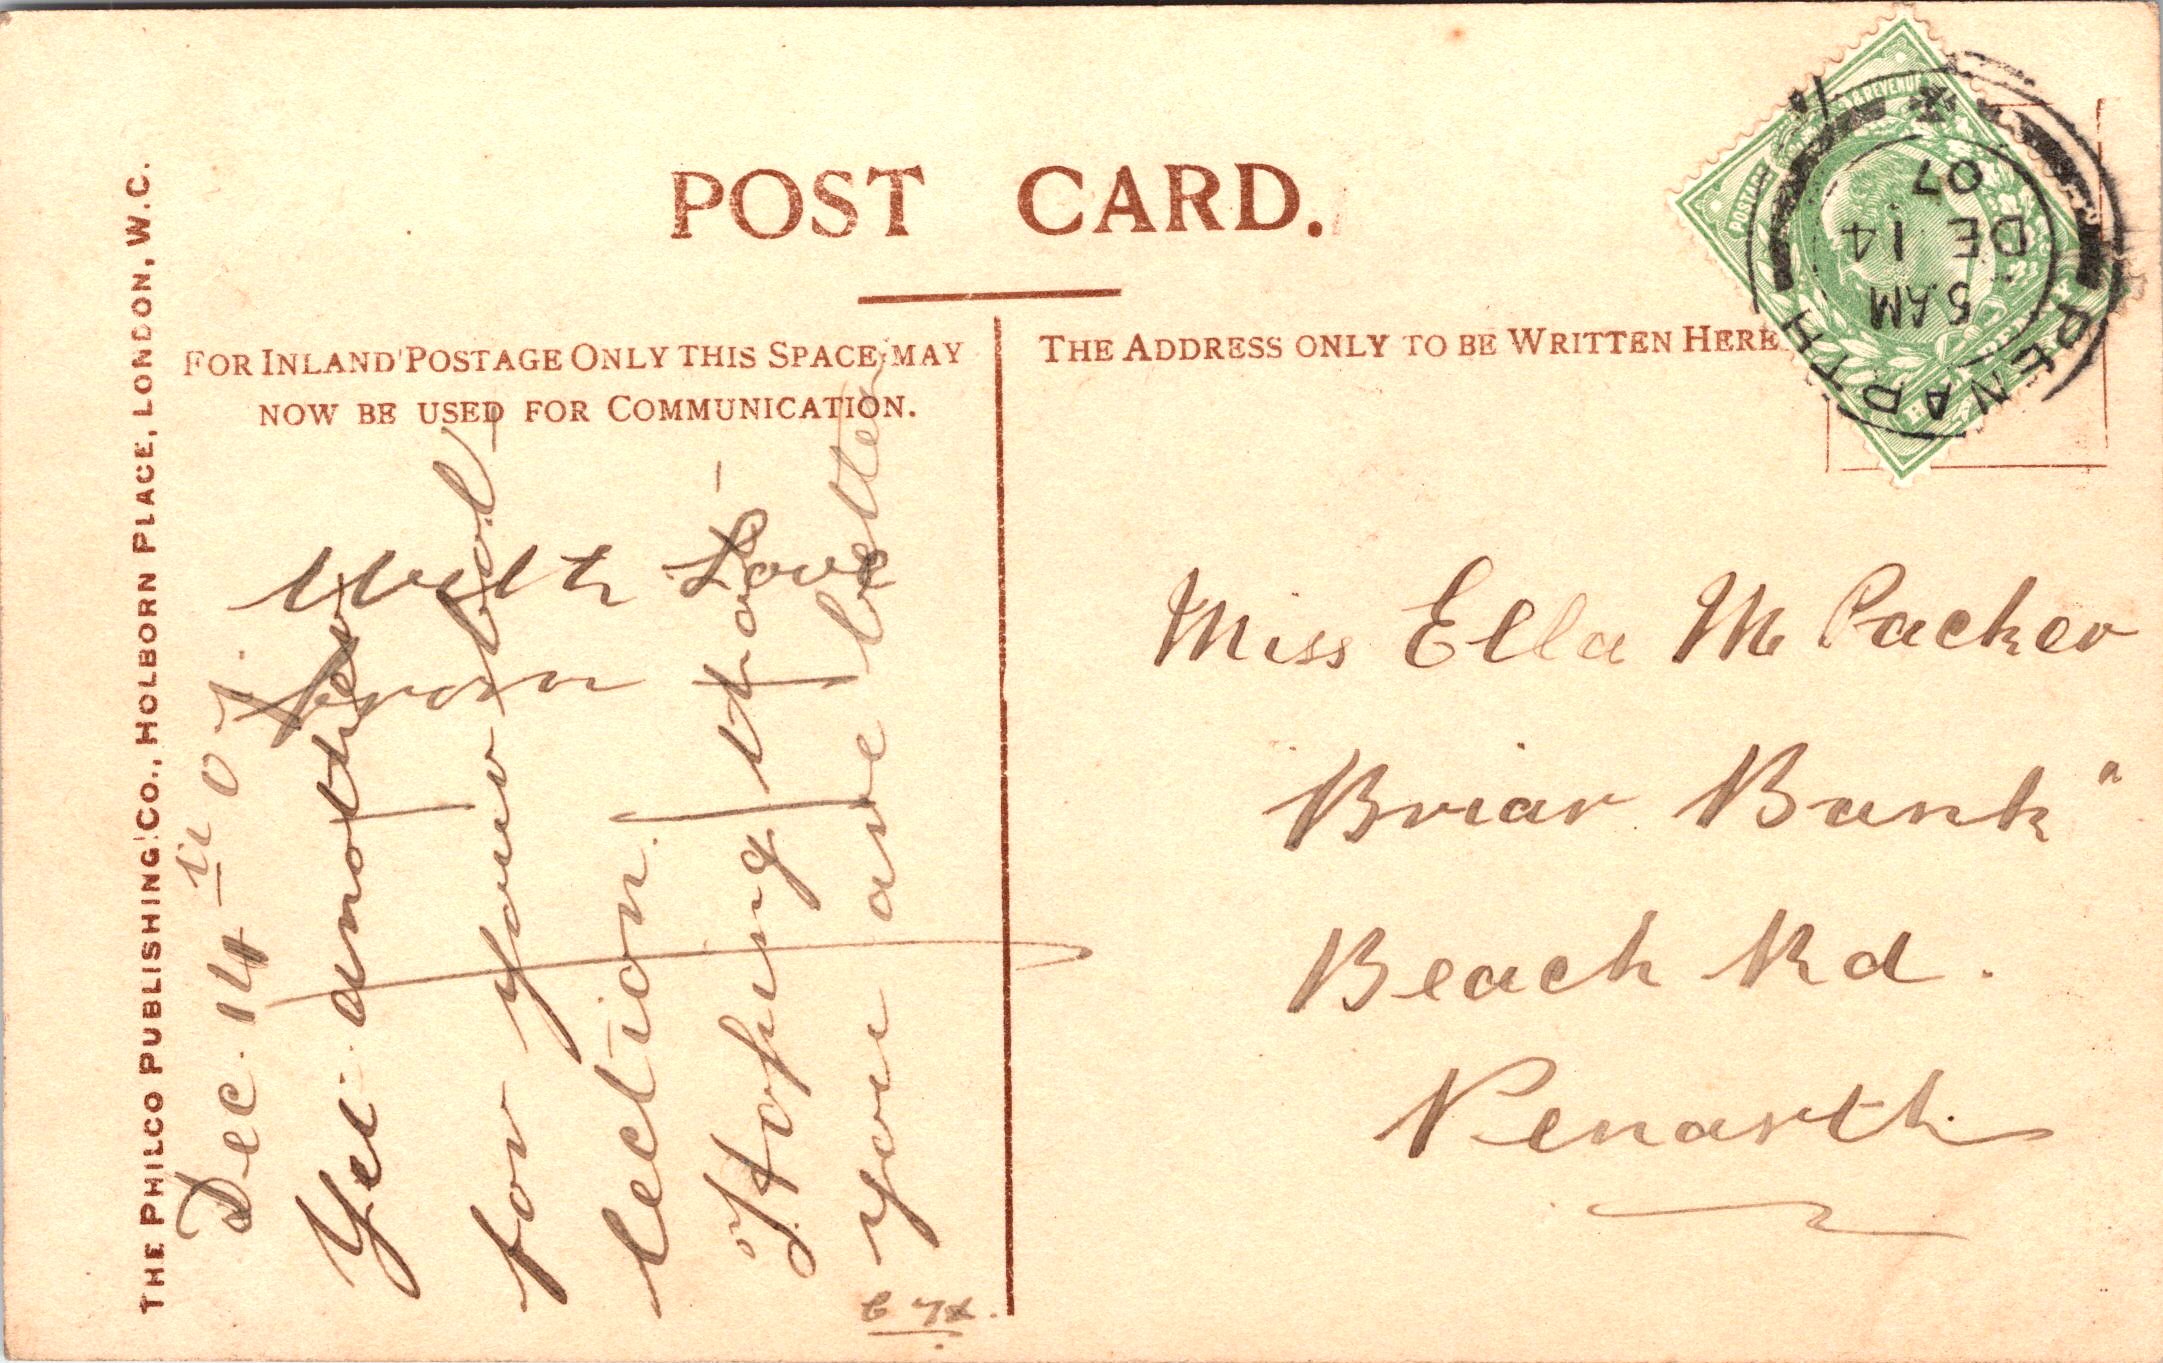 POST CARD.
FOR INLAND POSTAGE ONLY THIS SPACE MAY
NOW BE USED FOR COMMUNICATION.
THE ADDRESS ONLY TO BE WRITTEN HERE
THE PHILCO PUBLISHING CO., HOLBORN PLACE, LONDON, W.C.
POSTAGE & REVENUE
PENARTH
5 AM
DE 14
07
Dec. 14th 07.
Yet another
for your col-
lection.
Hoping that
you are better
With Love
from
Miss Ella M Packer
"Briar Bank"
Beach Rd.
Penarth